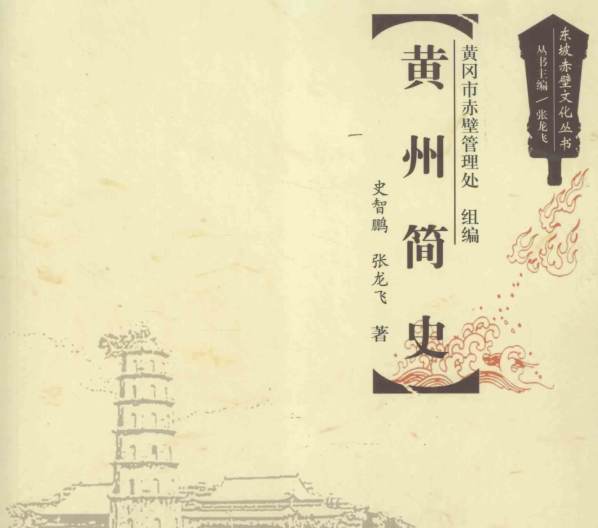 东坡赤壁文化丛书
丛书主编/张龙飞
黄冈市赤壁管理处 组编
黄州简史
史智鹏 张龙飞 著